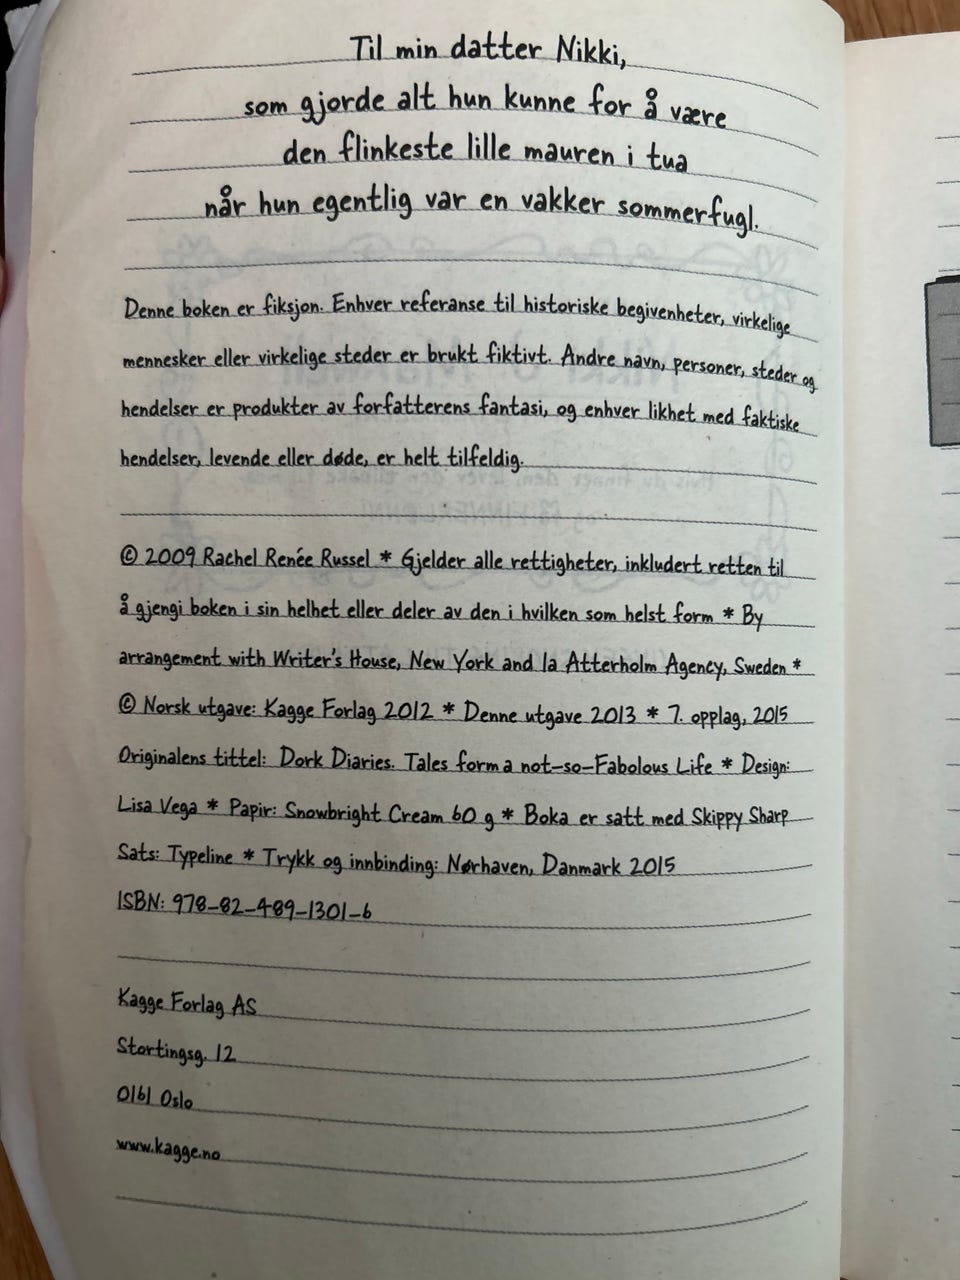 Til min datter Nikki,
som gjorde alt hun kunne for å være
den flinkeste lille mauren i tua
når hun egentlig var en vakker sommerfugl.
Denne boken er fiksjon. Enhver referanse til historiske begivenheter, virkelige
mennesker eller virkelige steder er brukt fiktivt. Andre navn, personer, steder og
hendelser er produkter av forfatterens fantasi, og enhver likhet med faktiske
hendelser, levende eller døde, er helt tilfeldig.
© 2009 Rachel Renée Russel * Gjelder alle rettigheter, inkludert retten til
å gjengi boken i sin helhet eller deler av den i hvilken som helst form * By
arrangement with Writer's House, New York and Ia Atterholm Agency, Sweden *
© Norsk utgave: Kagge Forlag 2012 * Denne utgave 2013 * 7. opplag, 2015
Originalens tittel: Dork Diaries. Tales form a not-so-Fabolous Life * Design:
Lisa Vega * Papir: Snowbright Cream 60 g * Boka er satt med Skippy Sharp
Sats: Typeline * Trykk og innbinding: Nørhaven, Danmark 2015
ISBN: 978-82-489-1301-6
Kagge Forlag AS
Stortingsg. 12
0161 Oslo
www.kagge.no